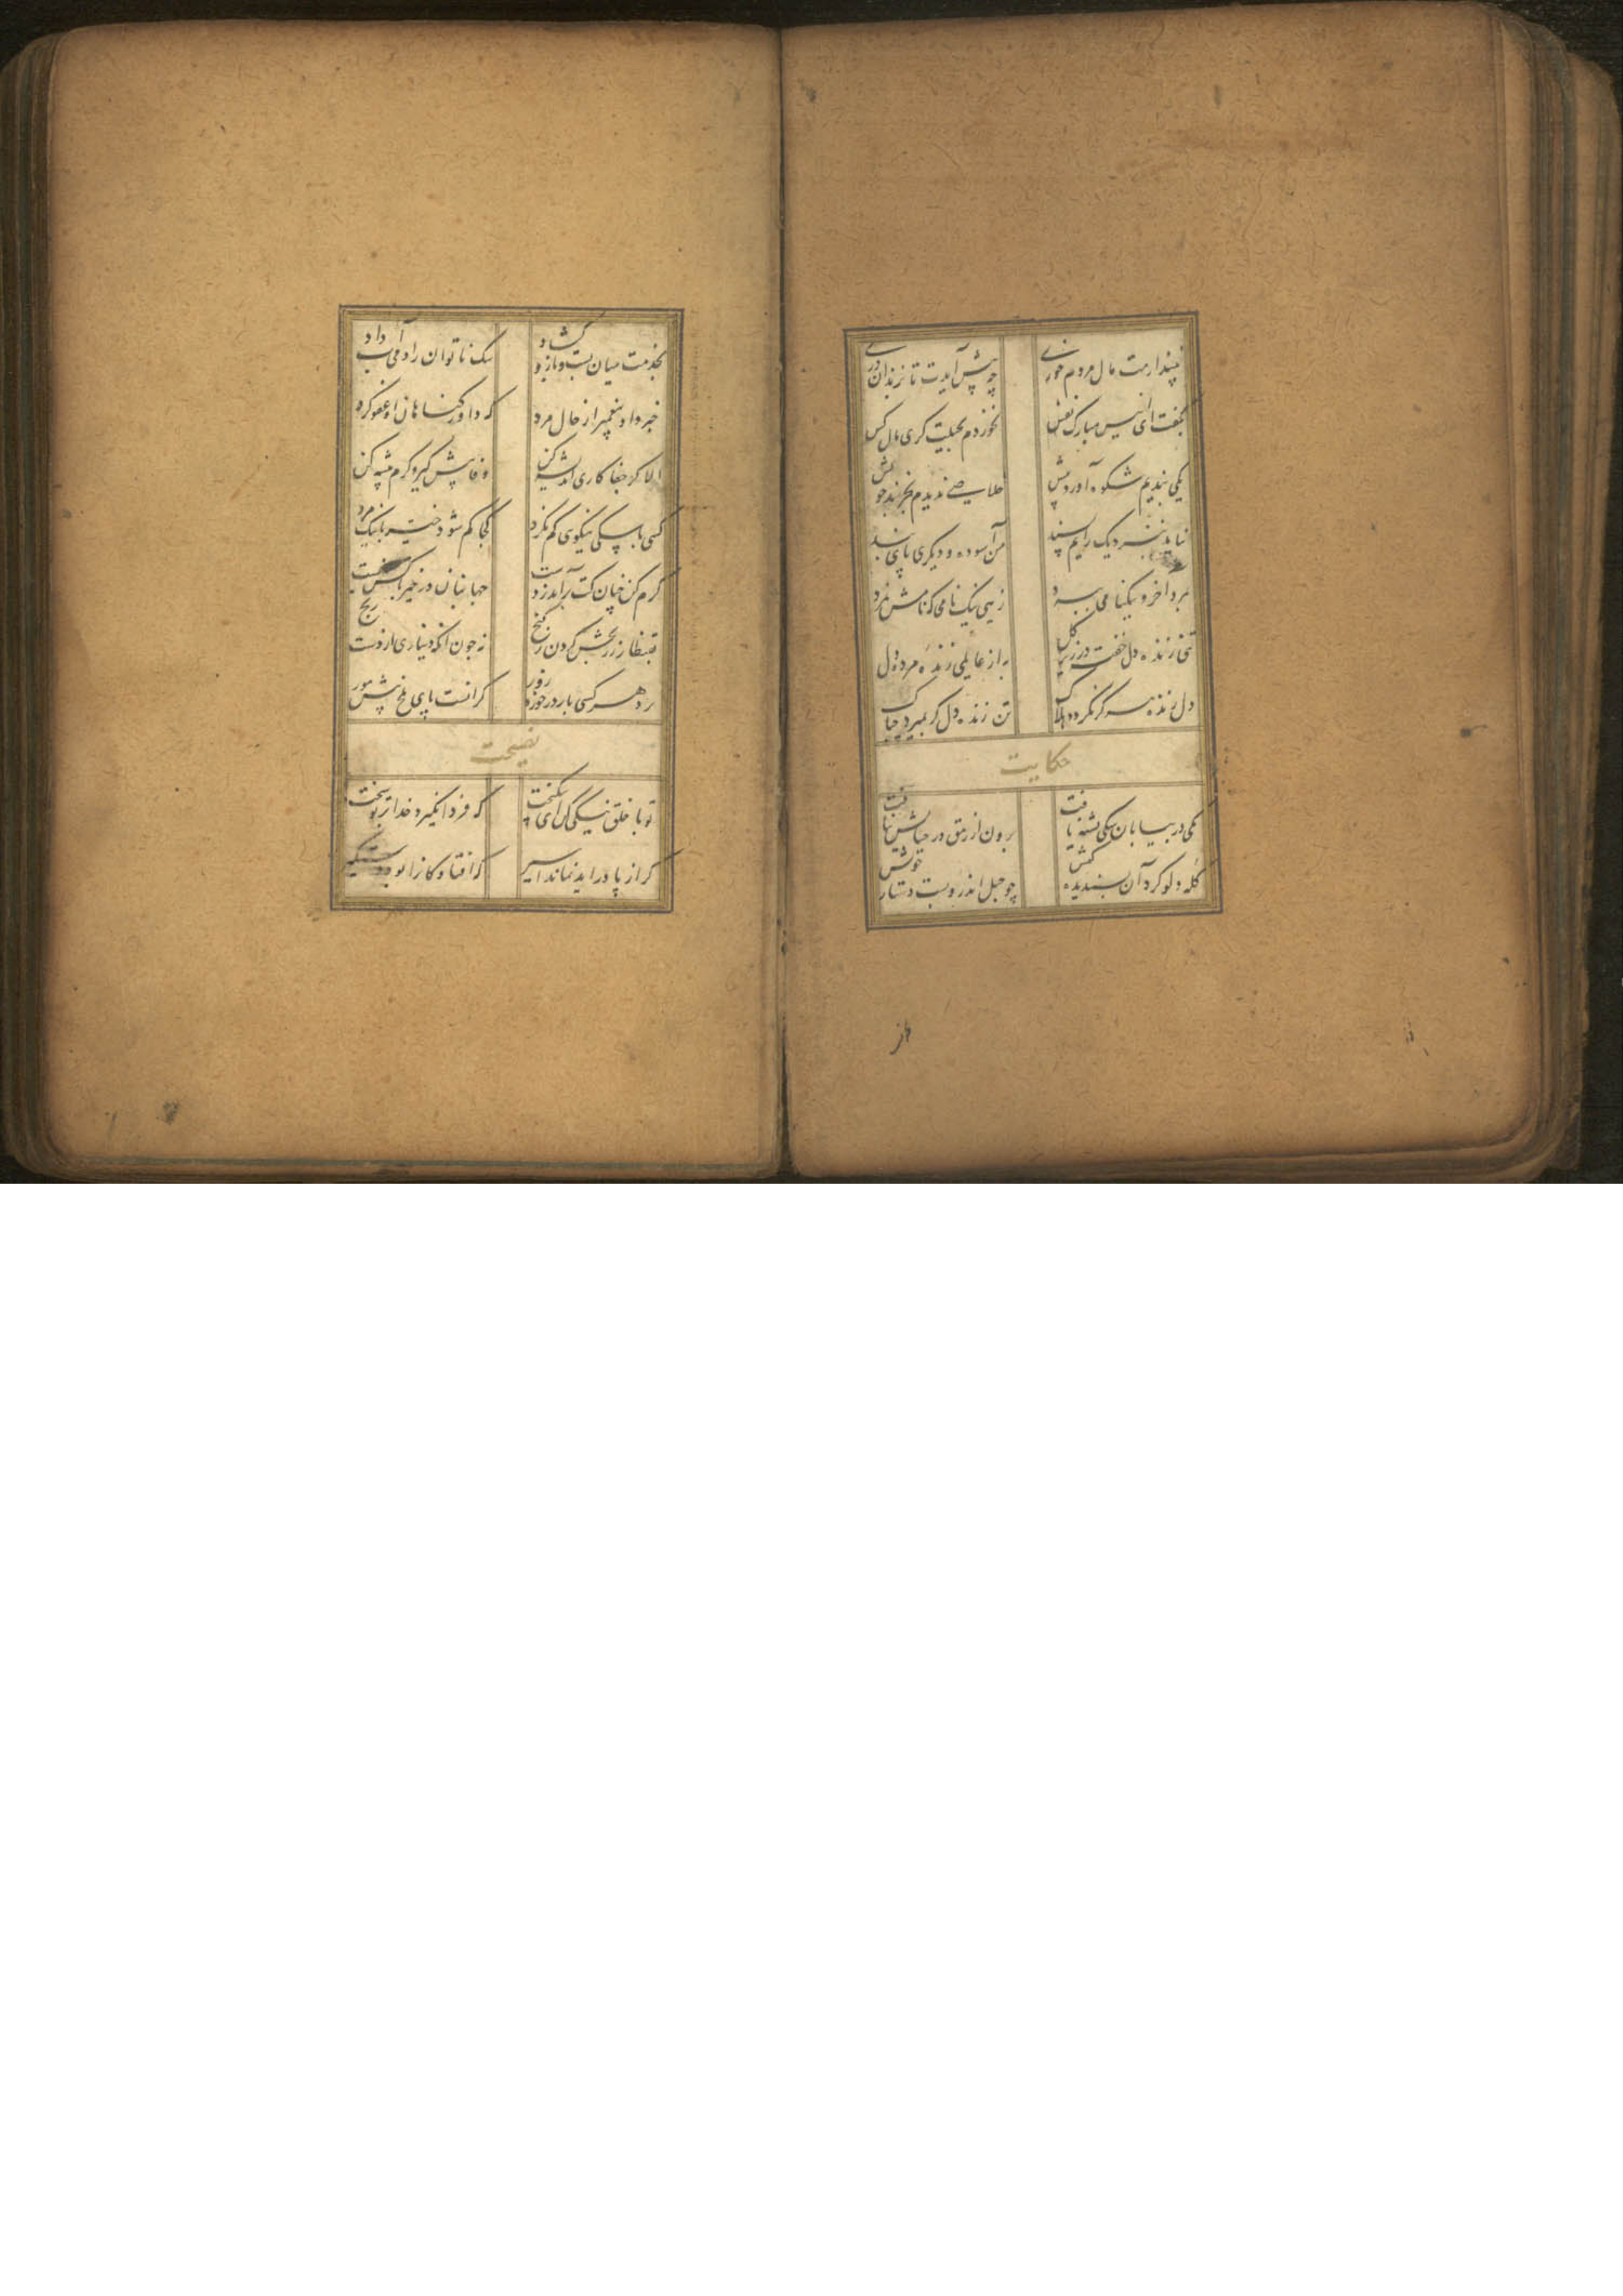 نپندارمت مال مردم خوری چه پیش آیدت تا بزندان دری
بگفت ای انیس مبارک نفس نخوردم بحیلت گری مال کس
یکی بندیم شکوه آورد پیش خلاصی ندیدم بجز بند خویش
نیامد بنزدیک رایم پسند من آسوده و دیگری پای بند
بمرد اخر و نیکنامی ببرد زهی نیک نامی که نامش نمرد
تنی زنده دل خفته در زیر گل به از عالمی زنده مرده دل
دل زنده هرگز نگردد هلاک تن زنده دل گر بمیرد چه باک
حکایت
یکی در بیابان سگی تشنه یافت برون از رمق در حیاتش نیافت
کله دلو کرد آن پسندیده کیش چو حبل اندرو بست دستار خویش
بخدمت میان بست و بازو گشاد سگ ناتوان را دمی آب داد
خبر داد پیغمبر از حال مرد که داور گناهان او عفو کرد
الا گر جفا کاری اندیشه کن وفا پیش گیر و کرم پیشه کن
کسی با سگی نیکوی گم نکرد کجا گم شود خیر با نیک مرد
کرم کن چنان کت برآید ز دست جهانبان در خیر بر کس نبست
بقنطار زر بخش کردن ز گنج نه چون آنکه دیناری از دست رنج
برد هر کسی بار در خورد زور گرانست پای ملخ پیش مور
نصیحت
تو با خلق نیکی کن ای نیکبخت که فردا نگیرد خدا بر تو سخت
گر از پا درآید نماند اسیر که افتادگان را بود دستگیر